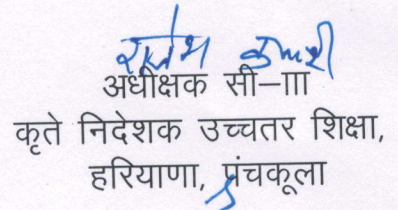 राजेश कुमारी
अधीक्षक सी-III
कृते निदेशक उच्चतर शिक्षा,
हरियाणा, पंचकूला